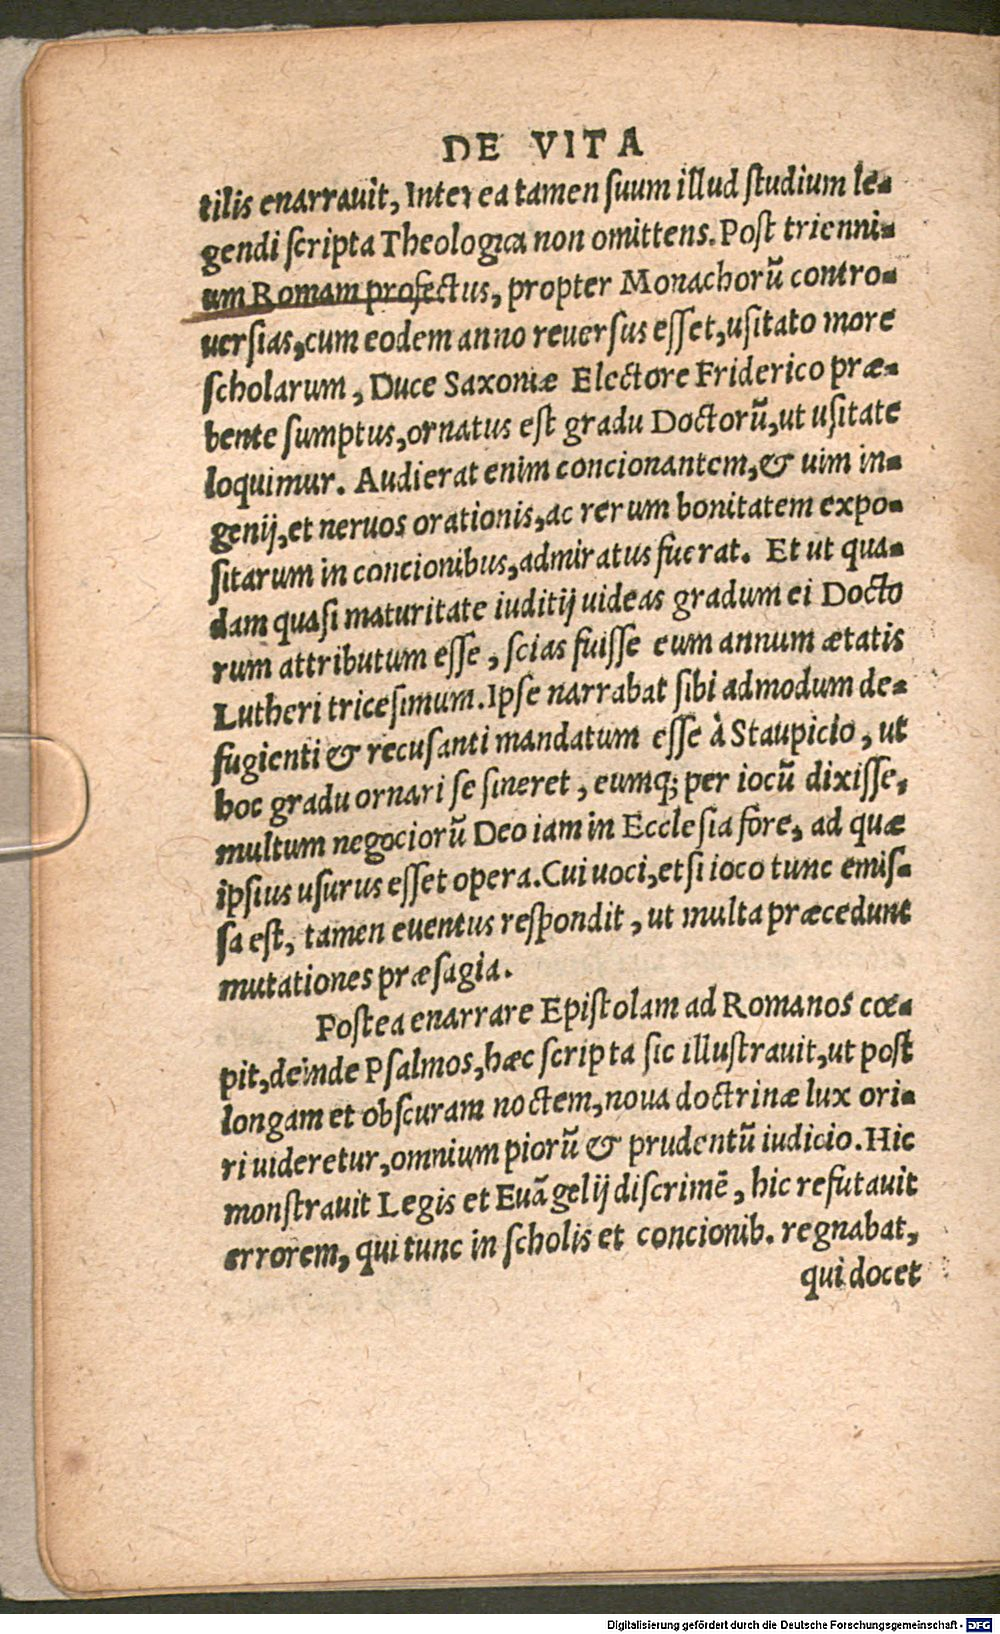 DE VITA
tilis enarrauit, Interea tamen ſuum illud ſtudium le-
gendi ſcripta Theologica non omittens. Poſt trienni-
um Romam profectus, propter Monachorũ contro-
uerſias, cum eodem anno reuerſus eſſet, uſitato more
ſcholarum, Duce Saxoniæ Electore Friderico præ-
bente ſumptus, ornatus eſt gradu Doctorũ, ut uſitate
loquimur. Audierat enim concionantem, & uim in-
genij, et neruos orationis, ac rerum bonitatem expo-
ſitarum in concionibus, admiratus fuerat. Et ut qua-
dam quaſi maturitate iuditij uideas gradum ei Docto
rum attributum eſſe, ſcias fuiſſe eum annum ætatis
Lutheri triceſimum. Ipſe narrabat ſibi admodum de-
fugienti & recuſanti mandatum eſſe à Staupicio, ut
hoc gradu ornari ſe ſineret, eumq; per iocũ dixiſſe,
multum negociorũ Deo iam in Eccleſia fore, ad quæ
ipſius uſurus eſſet opera. Cui uoci, etſi ioco tunc emiſ-
ſa eſt, tamen euentus reſpondit, ut multa præcedunt
mutationes præſagia.
Poſtea enarrare Epiſtolam ad Romanos cœ-
pit, deinde Pſalmos, hæc ſcripta ſic illuſtrauit, ut poſt
longam et obſcuram noctem, noua doctrinæ lux ori-
ri uideretur, omnium piorũ & prudentũ iudicio. Hic
monſtrauit Legis et Euãgelij diſcrimẽ, hic refutauit
errorem, qui tunc in ſcholis et concionib. regnabat,
qui docet
Digitalisierung gefördert durch die Deutsche Forschungsgemeinschaft - DFG